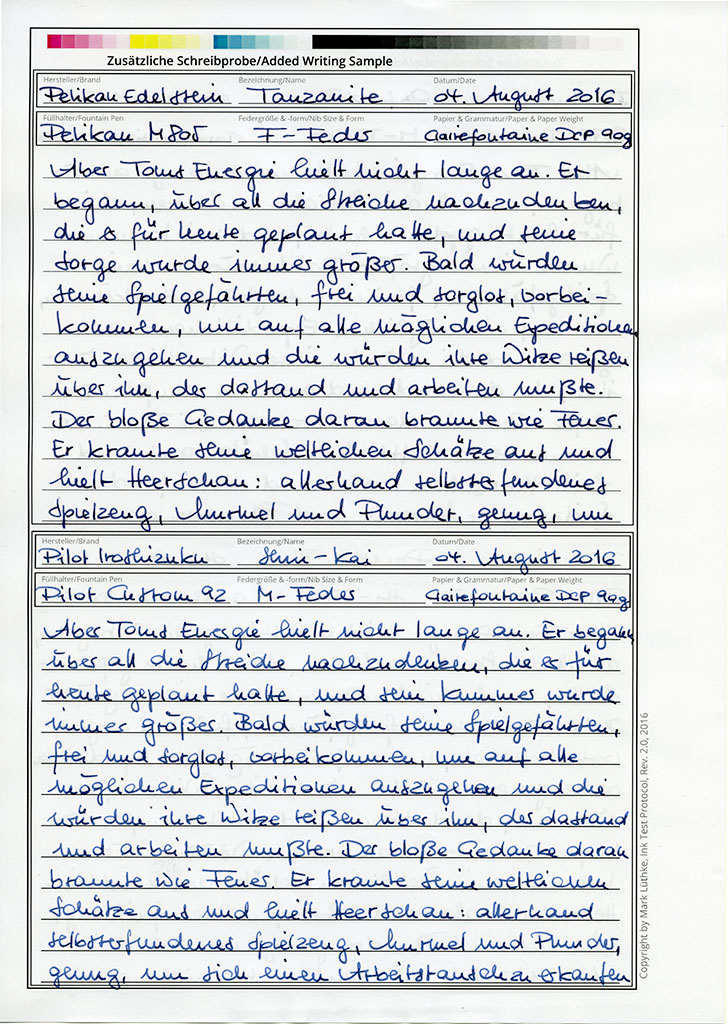 Zusätzliche Schreibprobe/Added Writing Sample
Hersteller/Brand Bezeichnung/Name Datum/Date
Pelikan Edelstein Tanzanite 04. August 2016
Füllhalter/Fountain Pen Federgröße & -form/Nib Size & Form Papier & Grammatur/Paper & Paper Weight
Pelikan M805 F-Feder Clairefontaine DCP 90g
Aber Toms Energie hielt nicht lange an. Er
begann, über all die Streiche nachzudenken,
die er für heute geplant hatte, und seine
Sorge wurde immer größer. Bald würden
seine Spielgefährten, frei und sorglos, vorbei-
kommen, um auf alle möglichen Expeditionen
auszugehen und die würden ihre Witze reißen
über ihn, der dastand und arbeiten mußte.
Der bloße Gedanke daran brannte wie Feuer.
Er kramte seine weltlichen Schätze aus und
hielt Heerschau: allerhand selbsterfundenes
Spielzeug, Murmel und Plunder, genug, um
Hersteller/Brand Bezeichnung/Name Datum/Date
Pilot Iroshizuku Shin-Kai 04. August 2016
Füllhalter/Fountain Pen Federgröße & -form/Nib Size & Form Papier & Grammatur/Paper & Paper Weight
Pilot Custom 92 M-Feder Clairefontaine DCP 90g
Aber Toms Energie hielt nicht lange an. Er begann
über all die Streiche nachzudenken, die er für
heute geplant hatte, und sein Kummer wurde
immer größer. Bald würden seine Spielgefährten,
frei und sorglos, vorbeikommen, um auf alle
möglichen Expeditionen auszugehen und die
würden ihre Witze reißen über ihn, der dastand
und arbeiten mußte. Der bloße Gedanke daran
brannte wie Feuer. Er kramte seine weltlichen
Schätze aus und hielt Heerschau: allerhand
selbsterfundenes Spielzeug, Murmel und Plunder,
genug, um sich einen Arbeitstausch zu erkaufen
Copyright by Mark Lüthke, Ink Test Protocol, Rev. 2.0, 2016